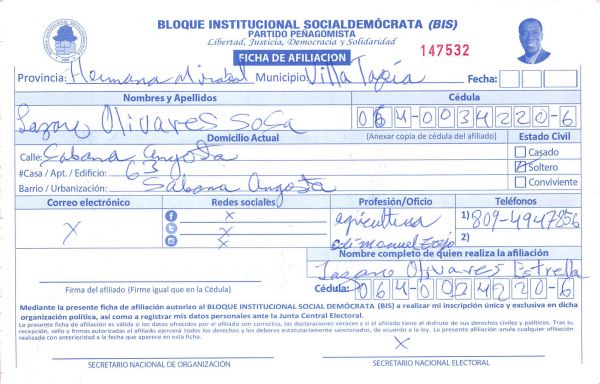 BLOQUE INSTITUCIONAL SOCIALDEMÓCRATA (BIS)
PARTIDO PEÑAGOMISTA
Libertad, Justicia, Democracia y Solidaridad
FICHA DE AFILIACION
147532
Provincia: Hermana Mirabal Municipio: Villa Tapia Fecha:
Nombres y Apellidos Cédula
Lazaro Olivares Sosa 064-0034220-6
Domicilio Actual (Anexar copia de cédula del afiliado) Estado Civil
Calle: Sabana Angosta Casado
#Casa / Apt. / Edificio: 63 Soltero
Barrio / Urbanización: Sabana Angosta Conviviente
Correo electrónico Redes sociales Profesión/Oficio Teléfonos
X X X X agricultura 1) 809-4947856
2)
Nombre completo de quien realiza la afiliación
Olivares Estrella
Firma del afiliado (Firme igual que en la Cédula) Cédula: 064-0034220-6
Mediante la presente ficha de afiliación autorizo al BLOQUE INSTITUCIONAL SOCIAL DEMÓCRATA (BIS) a realizar mi inscripción única y exclusiva en dicha
organización política, así como a registrar mis datos personales ante la Junta Central Electoral.
La presente ficha de afiliación es válida si los datos ofrecidos por el afiliado son correctos, las declaraciones veraces y si el afiliado tiene el disfrute de sus derechos civiles y políticos. Tras su
recepción, sello y firmas autorizadas el afiliado ejercerá todos los derechos y los deberes estatutariamente sancionados, de acuerdo a la ley. La presente afiliación anula cualquier afiliación
realizada con anterioridad a la fecha que aparece en esta ficha.
X
SECRETARIO NACIONAL DE ORGANIZACIÓN SECRETARIO NACIONAL ELECTORAL